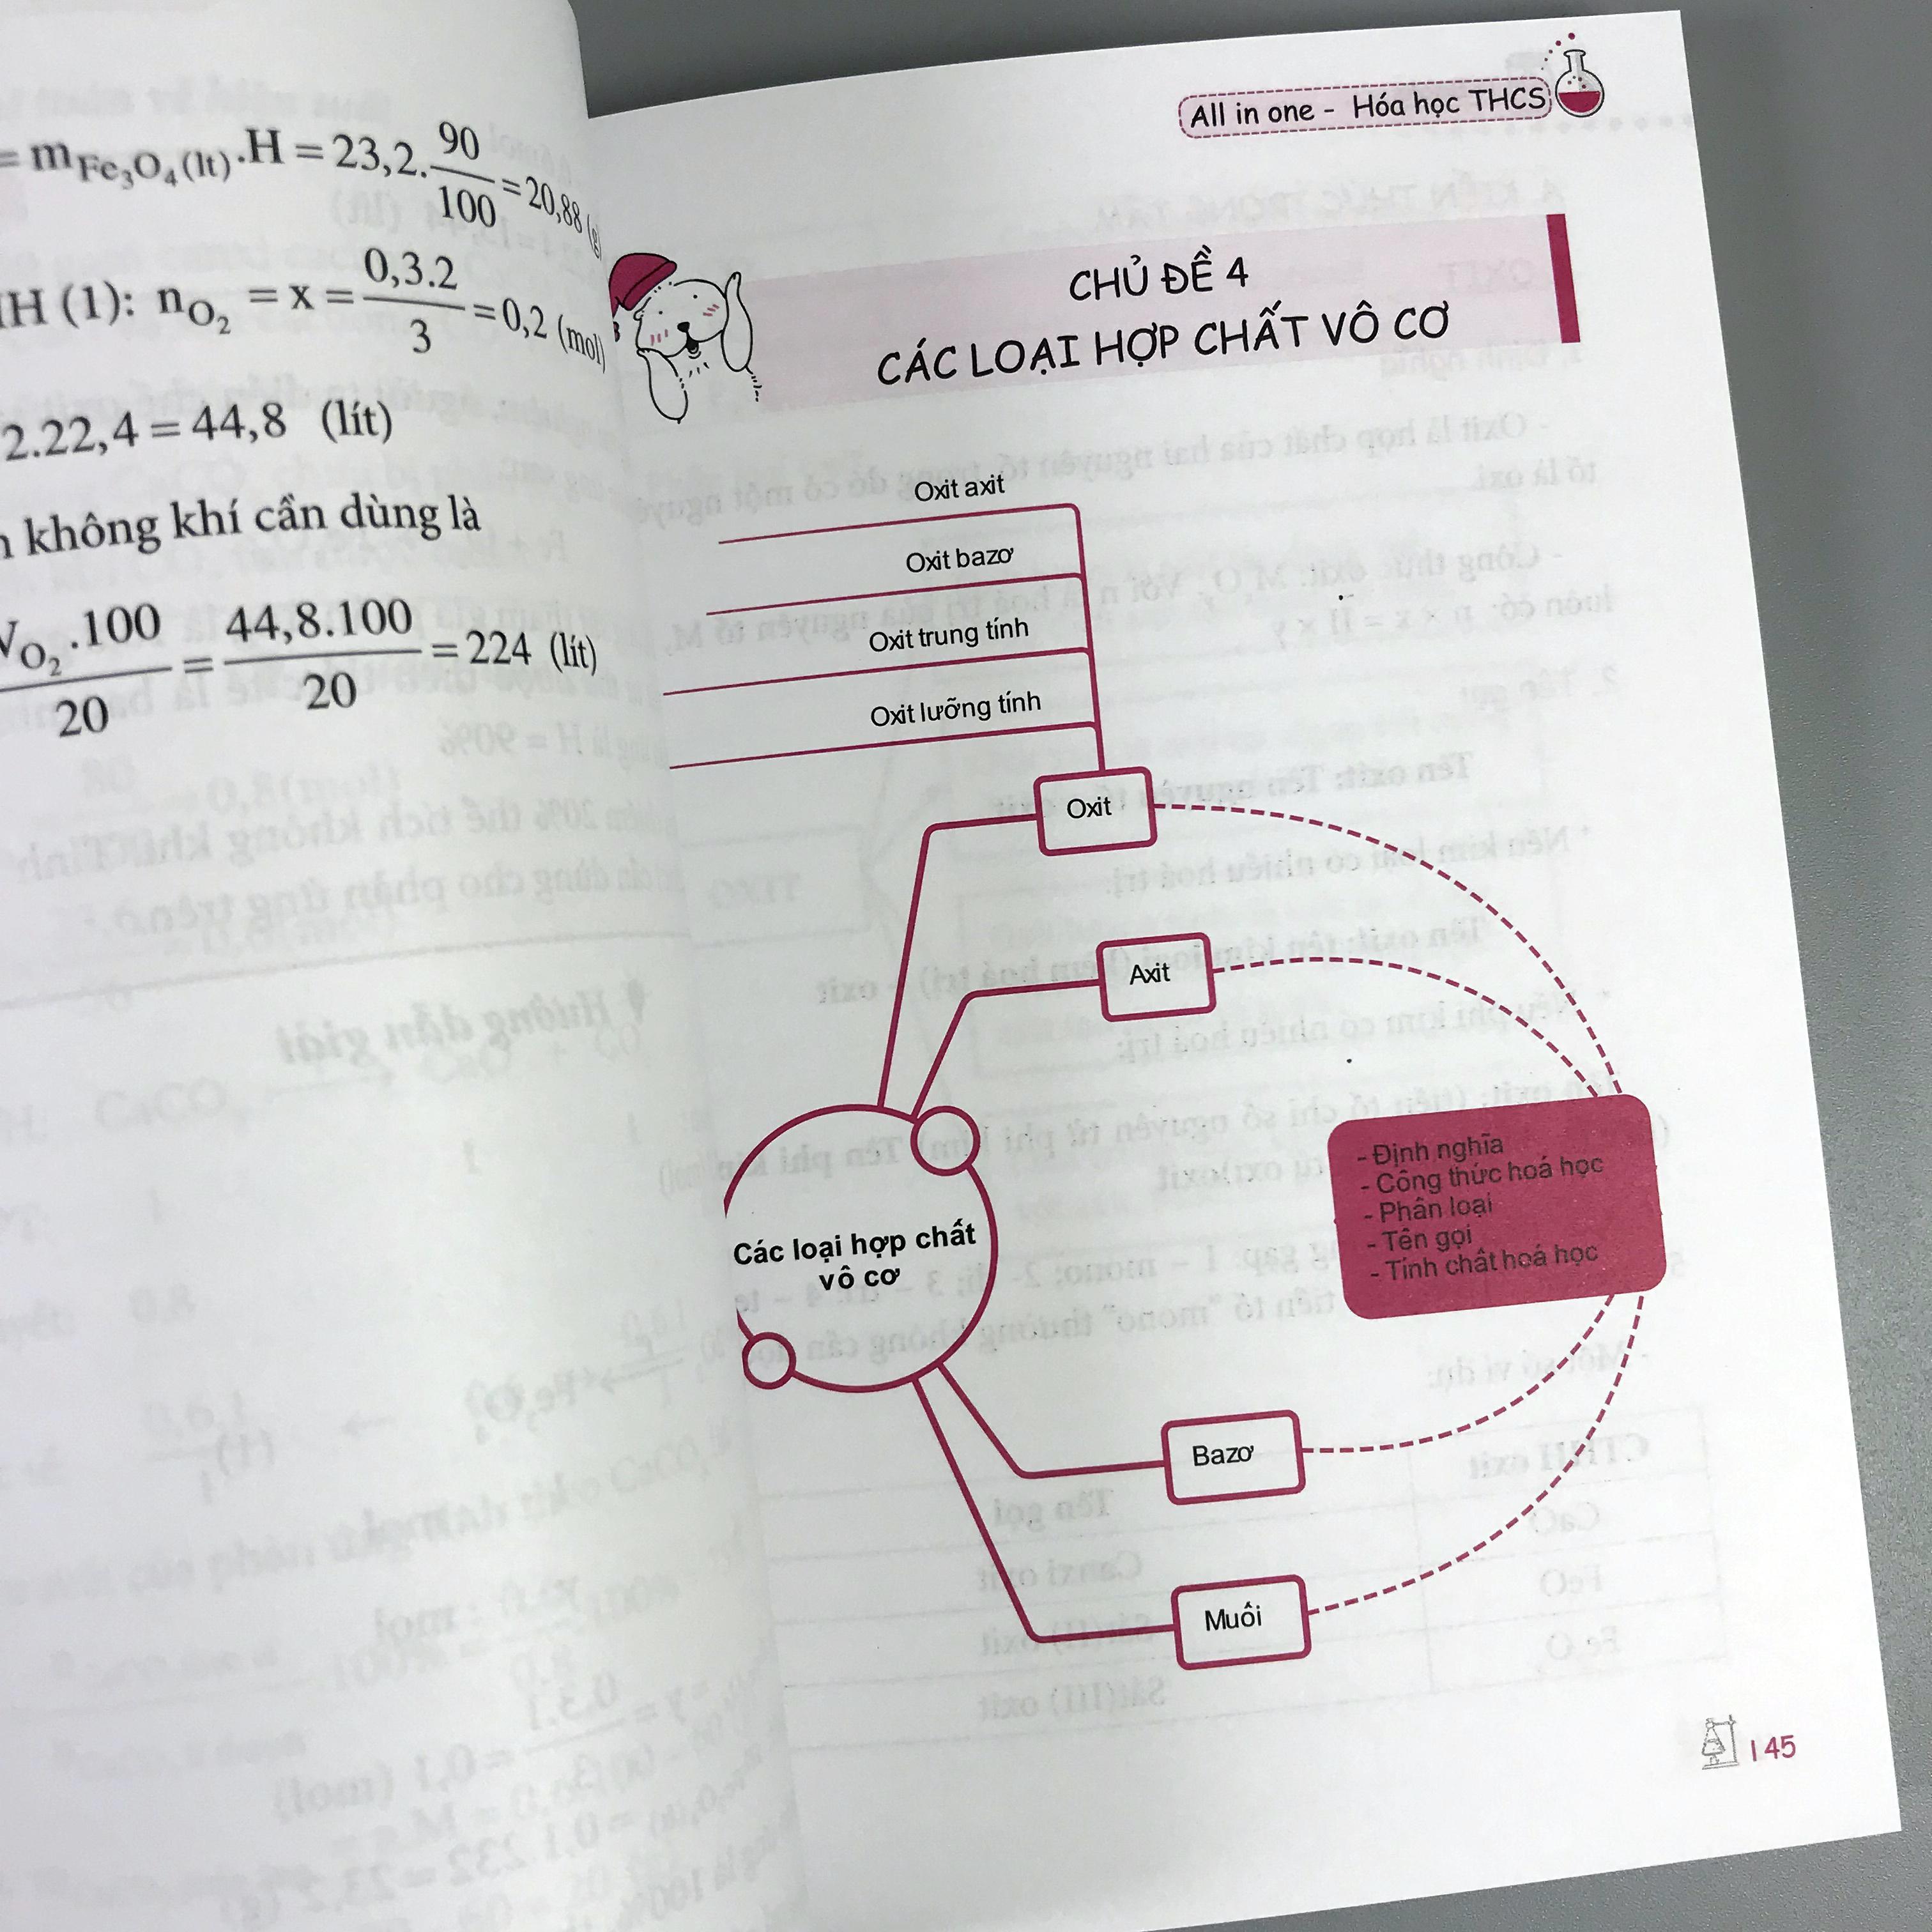 = m Fe₃O₄(lt).H = 23,2.90/100 = 20,88 (g)
H (1): nO₂ = x = 0,3.2/3 = 0,2 (mol)
2.22,4 = 44,8 (lít)
không khí cần dùng là
VO₂.100/20 = 44,8.100/20 = 224 (lít)
All in one - Hóa học THCS
CHỦ ĐỀ 4
CÁC LOẠI HỢP CHẤT VÔ CƠ
Oxit axit
Oxit bazơ
Oxit trung tính
Oxit lưỡng tính
Oxit
Axit
- Định nghĩa
- Công thức hoá học
- Phân loại
- Tên gọi
- Tính chất hoá học
Các loại hợp chất
vô cơ
Bazơ
Muối
145